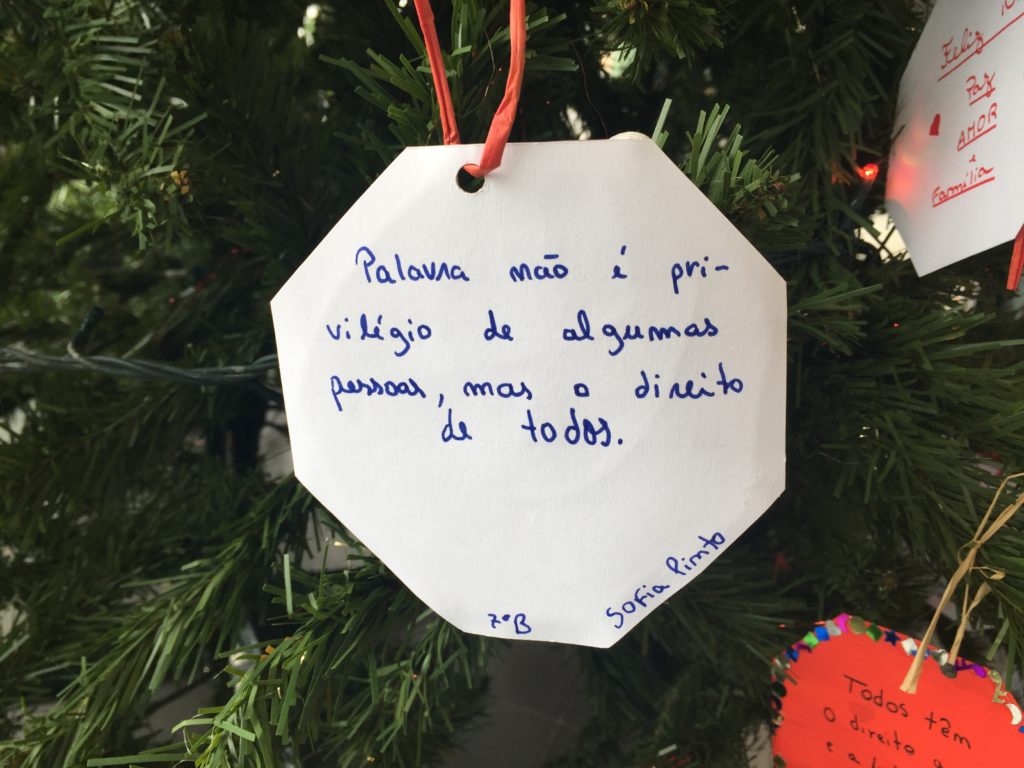 Palavra não é pri-
vilégio de algumas
pessoas, mas o direito
de todos.
7ºB
Sofia Pinto
Feliz
Paz
AMOR
e
Família
Todos têm
o direito a
e a